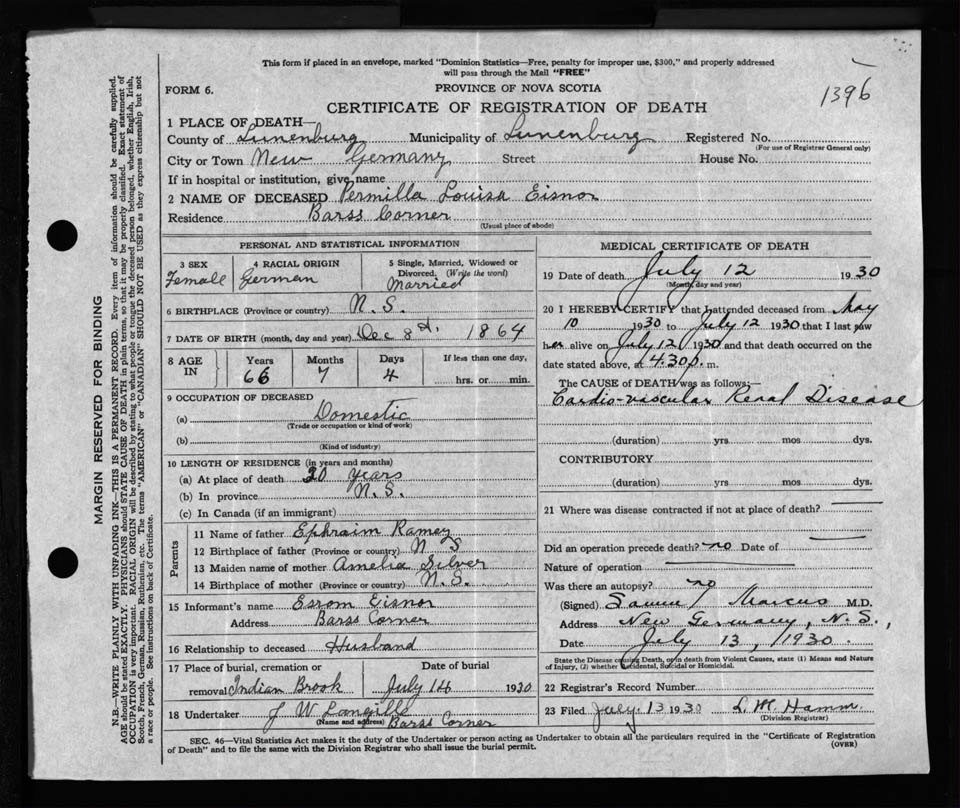 This form if placed in an envelope, marked "Dominion Statistics—Free, penalty for improper use, $300," and properly addressed
will pass through the Mail "FREE"
FORM 6.
PROVINCE OF NOVA SCOTIA
1396
CERTIFICATE OF REGISTRATION OF DEATH
1 PLACE OF DEATH—
County of Lunenburg Municipality of Lunenburg Registered No.
(For use of Registrar General only)
City or Town New Germany Street House No.
If in hospital or institution, give name
2 NAME OF DECEASED Permilla Louisa Eisnor
Residence Barss Corner
(Usual place of abode)
PERSONAL AND STATISTICAL INFORMATION
3 SEX 4 RACIAL ORIGIN 5 Single, Married, Widowed or
Divorced. (Write the word)
Female German Married
6 BIRTHPLACE (Province or country) N. S.
7 DATE OF BIRTH (month, day and year) Dec 8th, 1864
8 AGE IN Years Months Days If less than one day,
66 7 4 hrs. or min.
9 OCCUPATION OF DECEASED
(a) Domestic
(Trade or occupation or kind of work)
(b)
(Kind of industry)
10 LENGTH OF RESIDENCE (in years and months)
(a) At place of death 30 years
(b) In province N. S.
(c) In Canada (if an immigrant)
Parents
11 Name of father Ephraim Ramey
12 Birthplace of father (Province or country) N S
13 Maiden name of mother Amelia Silver
14 Birthplace of mother (Province or country) N. S.
15 Informant's name Esrom Eisnor
Address Barss Corner
16 Relationship to deceased Husband
17 Place of burial, cremation or Date of burial
removal Indian Brook July 14 1930
18 Undertaker J W Langille
(Name and address) Barss Corner
MEDICAL CERTIFICATE OF DEATH
19 Date of death July 12 1930
(Month, day and year)
20 I HEREBY CERTIFY that I attended deceased from May
10 1930 to July 12 1930 that I last saw
her alive on July 12 1930 and that death occurred on the
date stated above, at 4.30 p. m.
The CAUSE OF DEATH was as follows:—
Cardio-vascular Renal Disease
(duration) yrs mos dys.
CONTRIBUTORY
(duration) yrs mos dys.
21 Where was disease contracted if not at place of death?
Did an operation precede death? no Date of
Nature of operation
Was there an autopsy? no
(Signed) Marcus M.D.
Address New Germany, N. S.,
Date July 13, 1930.
State the Disease causing Death, or in death from Violent Causes, state (1) Means and Nature
of Injury, (2) whether Accidental, Suicidal or Homicidal.
22 Registrar's Record Number
23 Filed July 13 1930 Hamm
(Division Registrar)
SEC. 46—Vital Statistics Act makes it the duty of the Undertaker or person acting as Undertaker to obtain all the particulars required in the "Certificate of Registration
of Death" and to file the same with the Division Registrar who shall issue the burial permit.
(OVER)
MARGIN RESERVED FOR BINDING
N.B.—WRITE PLAINLY WITH UNFADING INK—THIS IS A PERMANENT RECORD. Every item of information should be carefully supplied.
AGE should be stated EXACTLY. PHYSICIANS should STATE CAUSE OF DEATH in plain terms, so that it may be properly classified. Exact statement of
OCCUPATION is very important. RACIAL ORIGIN will be described by stating to what people or tongue the deceased person belonged, whether English, Irish,
Scotch, French, German, Russian, Ruthenian, etc. The terms "AMERICAN" or "CANADIAN" SHOULD NOT BE USED as they express citizenship but not
a race or people. See instructions on back of Certificate.